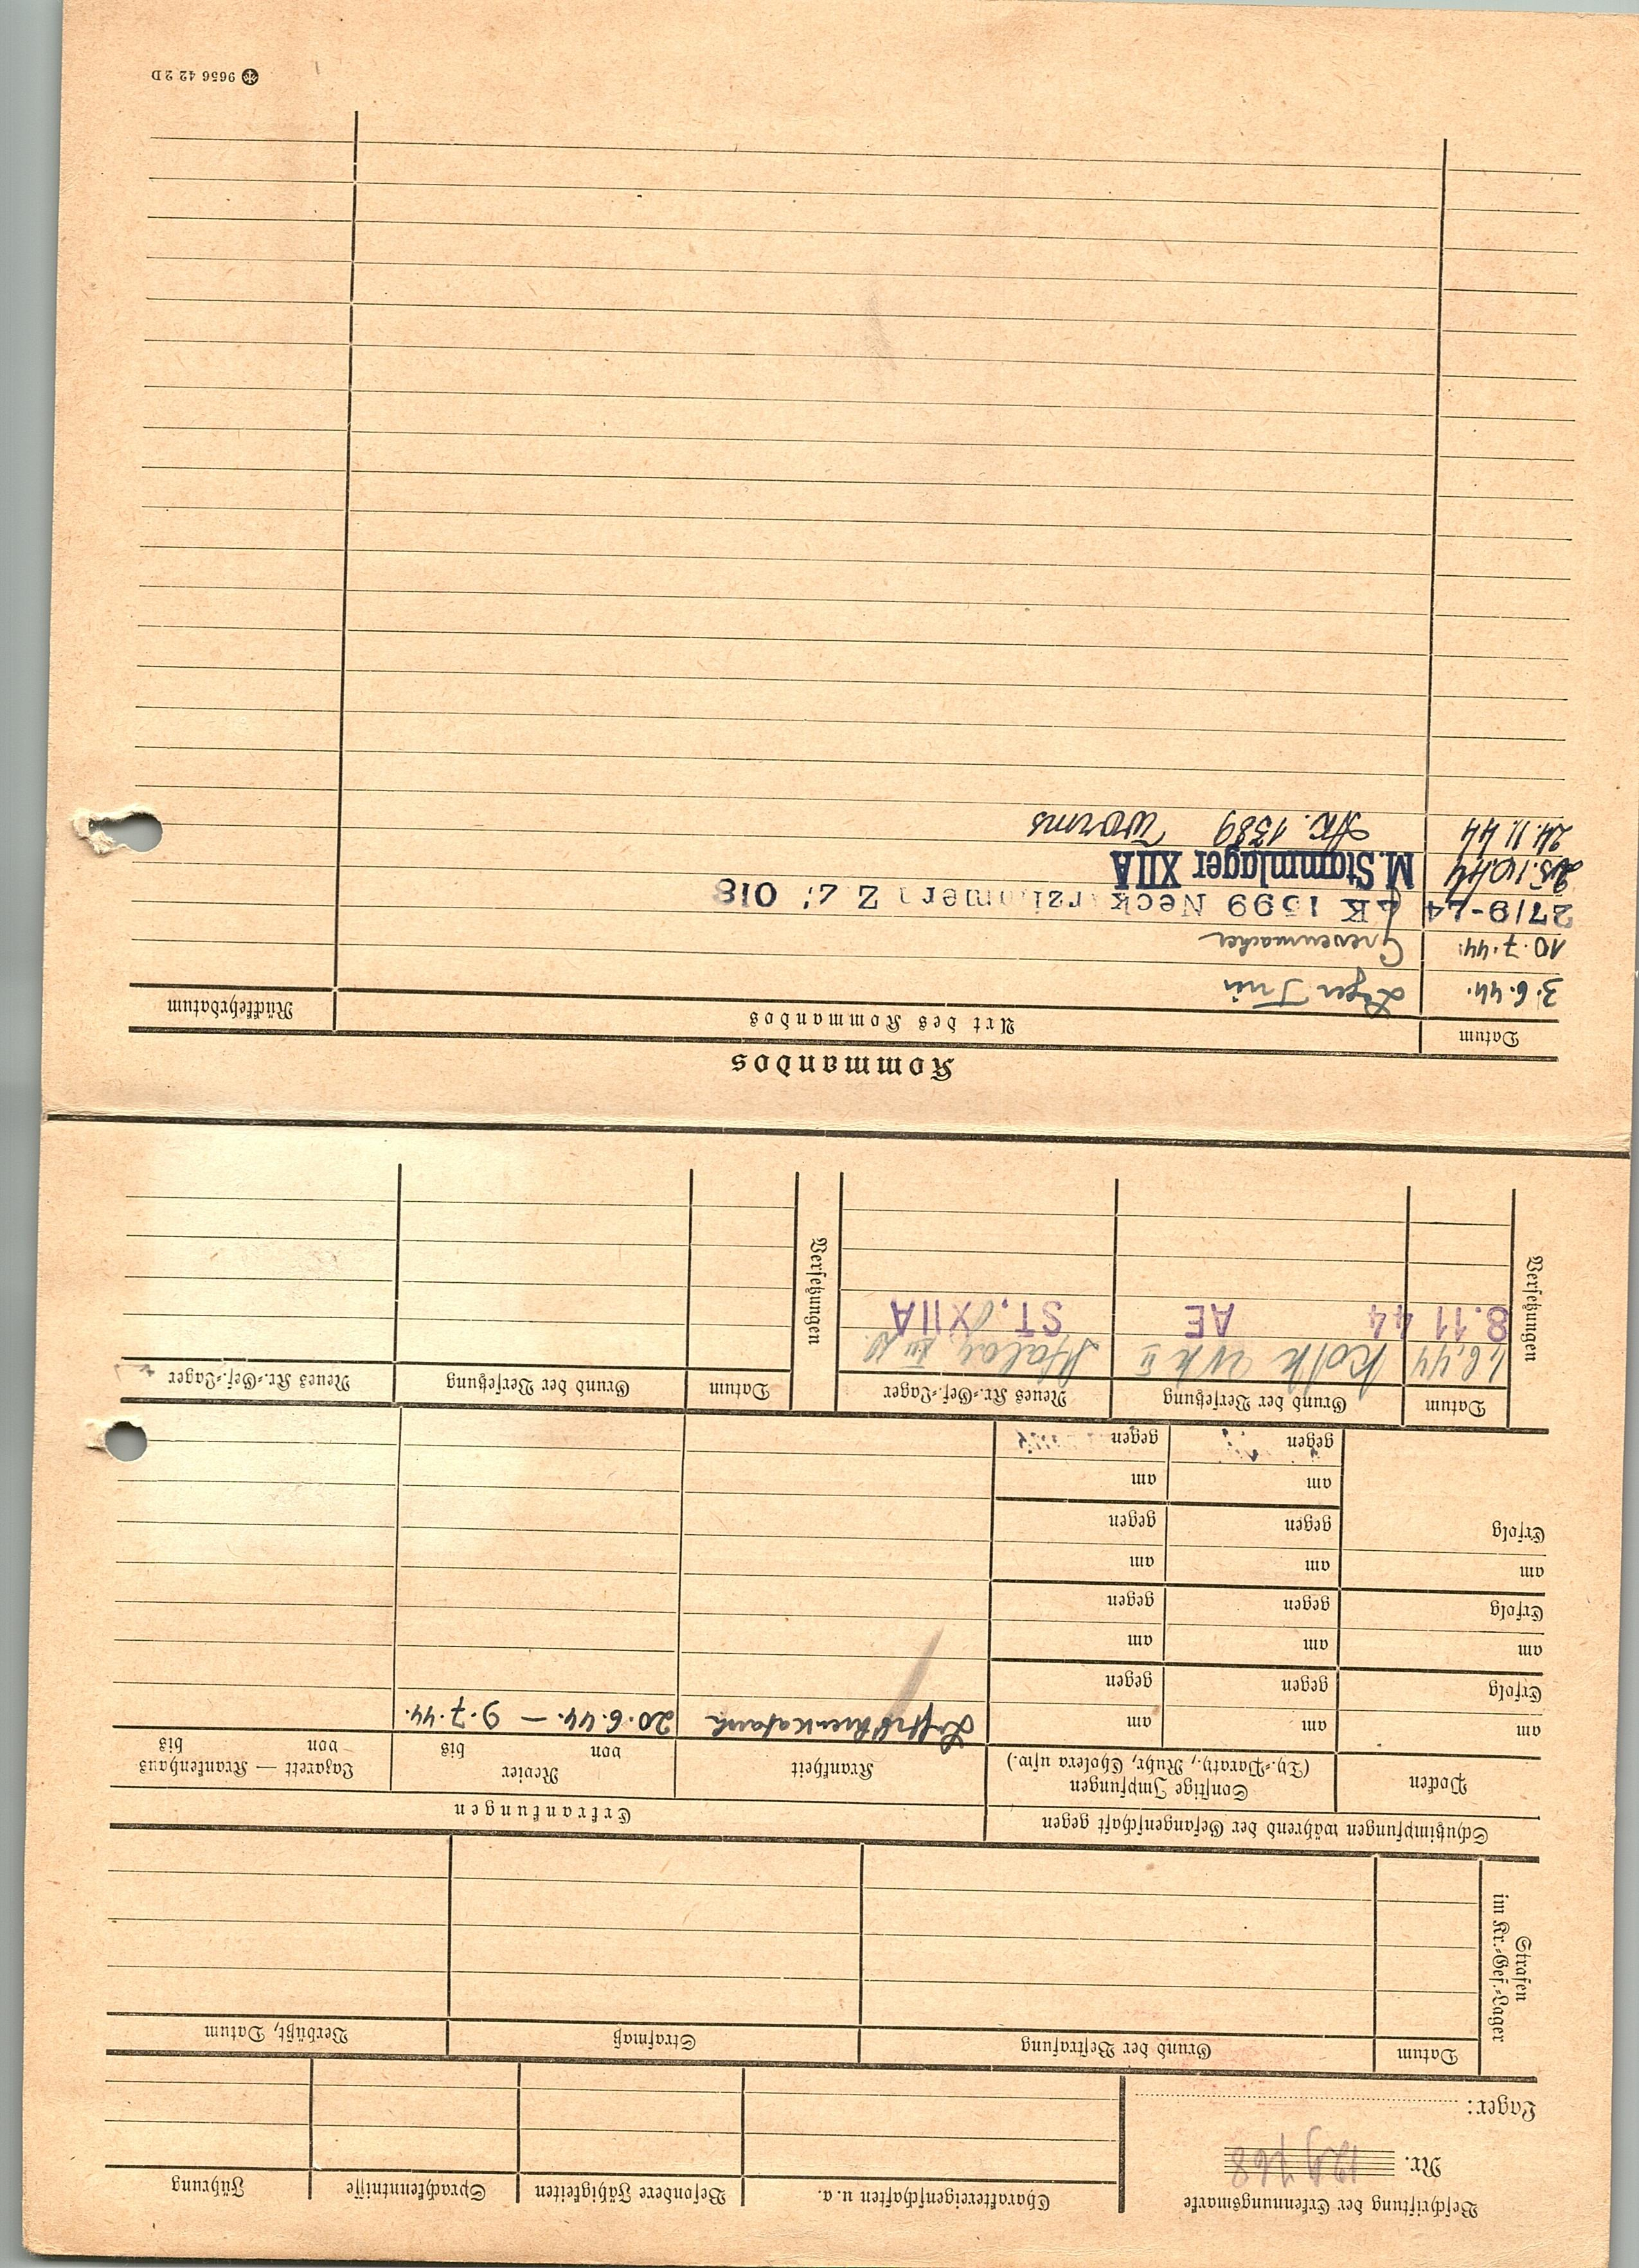 Beschriftung der Erkennungsmarke
Nr.
Lager:
Charaktereigenschaften u. a.
Besondere Fähigkeiten
Sprachkenntnisse
Führung
Strafen
im Kr.=Gef.=Lager
Datum
Grund der Bestrafung
Strafmaß
Verbüßt, Datum
Schutzimpfungen während der Gefangenschaft gegen
Erkrankungen
Pocken
Sonstige Impfungen
(Ty.=Paraty., Ruhr, Cholera usw.)
Krankheit
Revier
von bis
Lazarett — Krankenhaus
von bis
am
am
am
20.6.44. — 9.7.44.
Erfolg
gegen
gegen
am
am
am
Erfolg
gegen
gegen
am
am
am
Erfolg
gegen
gegen
am
am
gegen
gegen
Versetzungen
Datum
Grund der Versetzung
Neues Kr.=Gef.=Lager
Versetzungen
Datum
Grund der Versetzung
Neues Kr.=Gef.=Lager
1.6.44
Stalag XII
8.11 44 AE ST. XIIA
Kommandos
Datum
Art des Kommandos
Rückkehrdatum
3.6.44. Lager Trier
10.7.44. Grevenmacher
27/9-44 1599
25.10.44 M. Stammlager XIIA
24.11.44 1389 Worms
9656 42 2 D